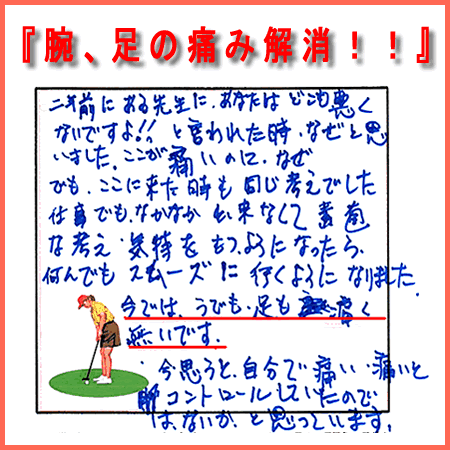 『腕、足の痛み解消！！』
二年前にある先生に、あなたはどこも悪く
ないですよ!! と言われた時、なぜと思
いました。ここが痛いのに、なぜ
でも、ここに来た時も同じ考えでした
仕事でも、なかなか出来なくて
な考え・気持をもつようになったら、
何んでもスムーズに行くようになりました。
今では、うでも・足も 痛く
無いです。
今思うと、自分で痛い・痛いと
コントロールしていたので
は、ないか、と思っています。